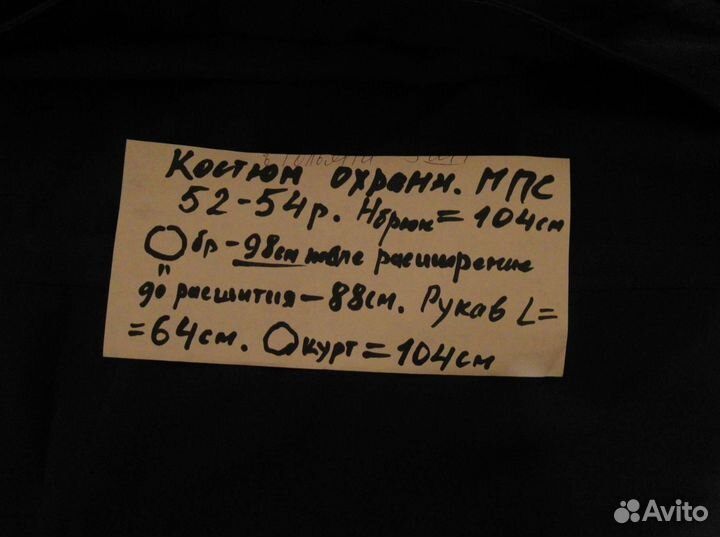 Костюм охрани. МПС
52-54р. Hбрюк = 104см
бр - 98см после расширение
до расшития - 88см. Рукав L =
= 64см. курт = 104см
Avito